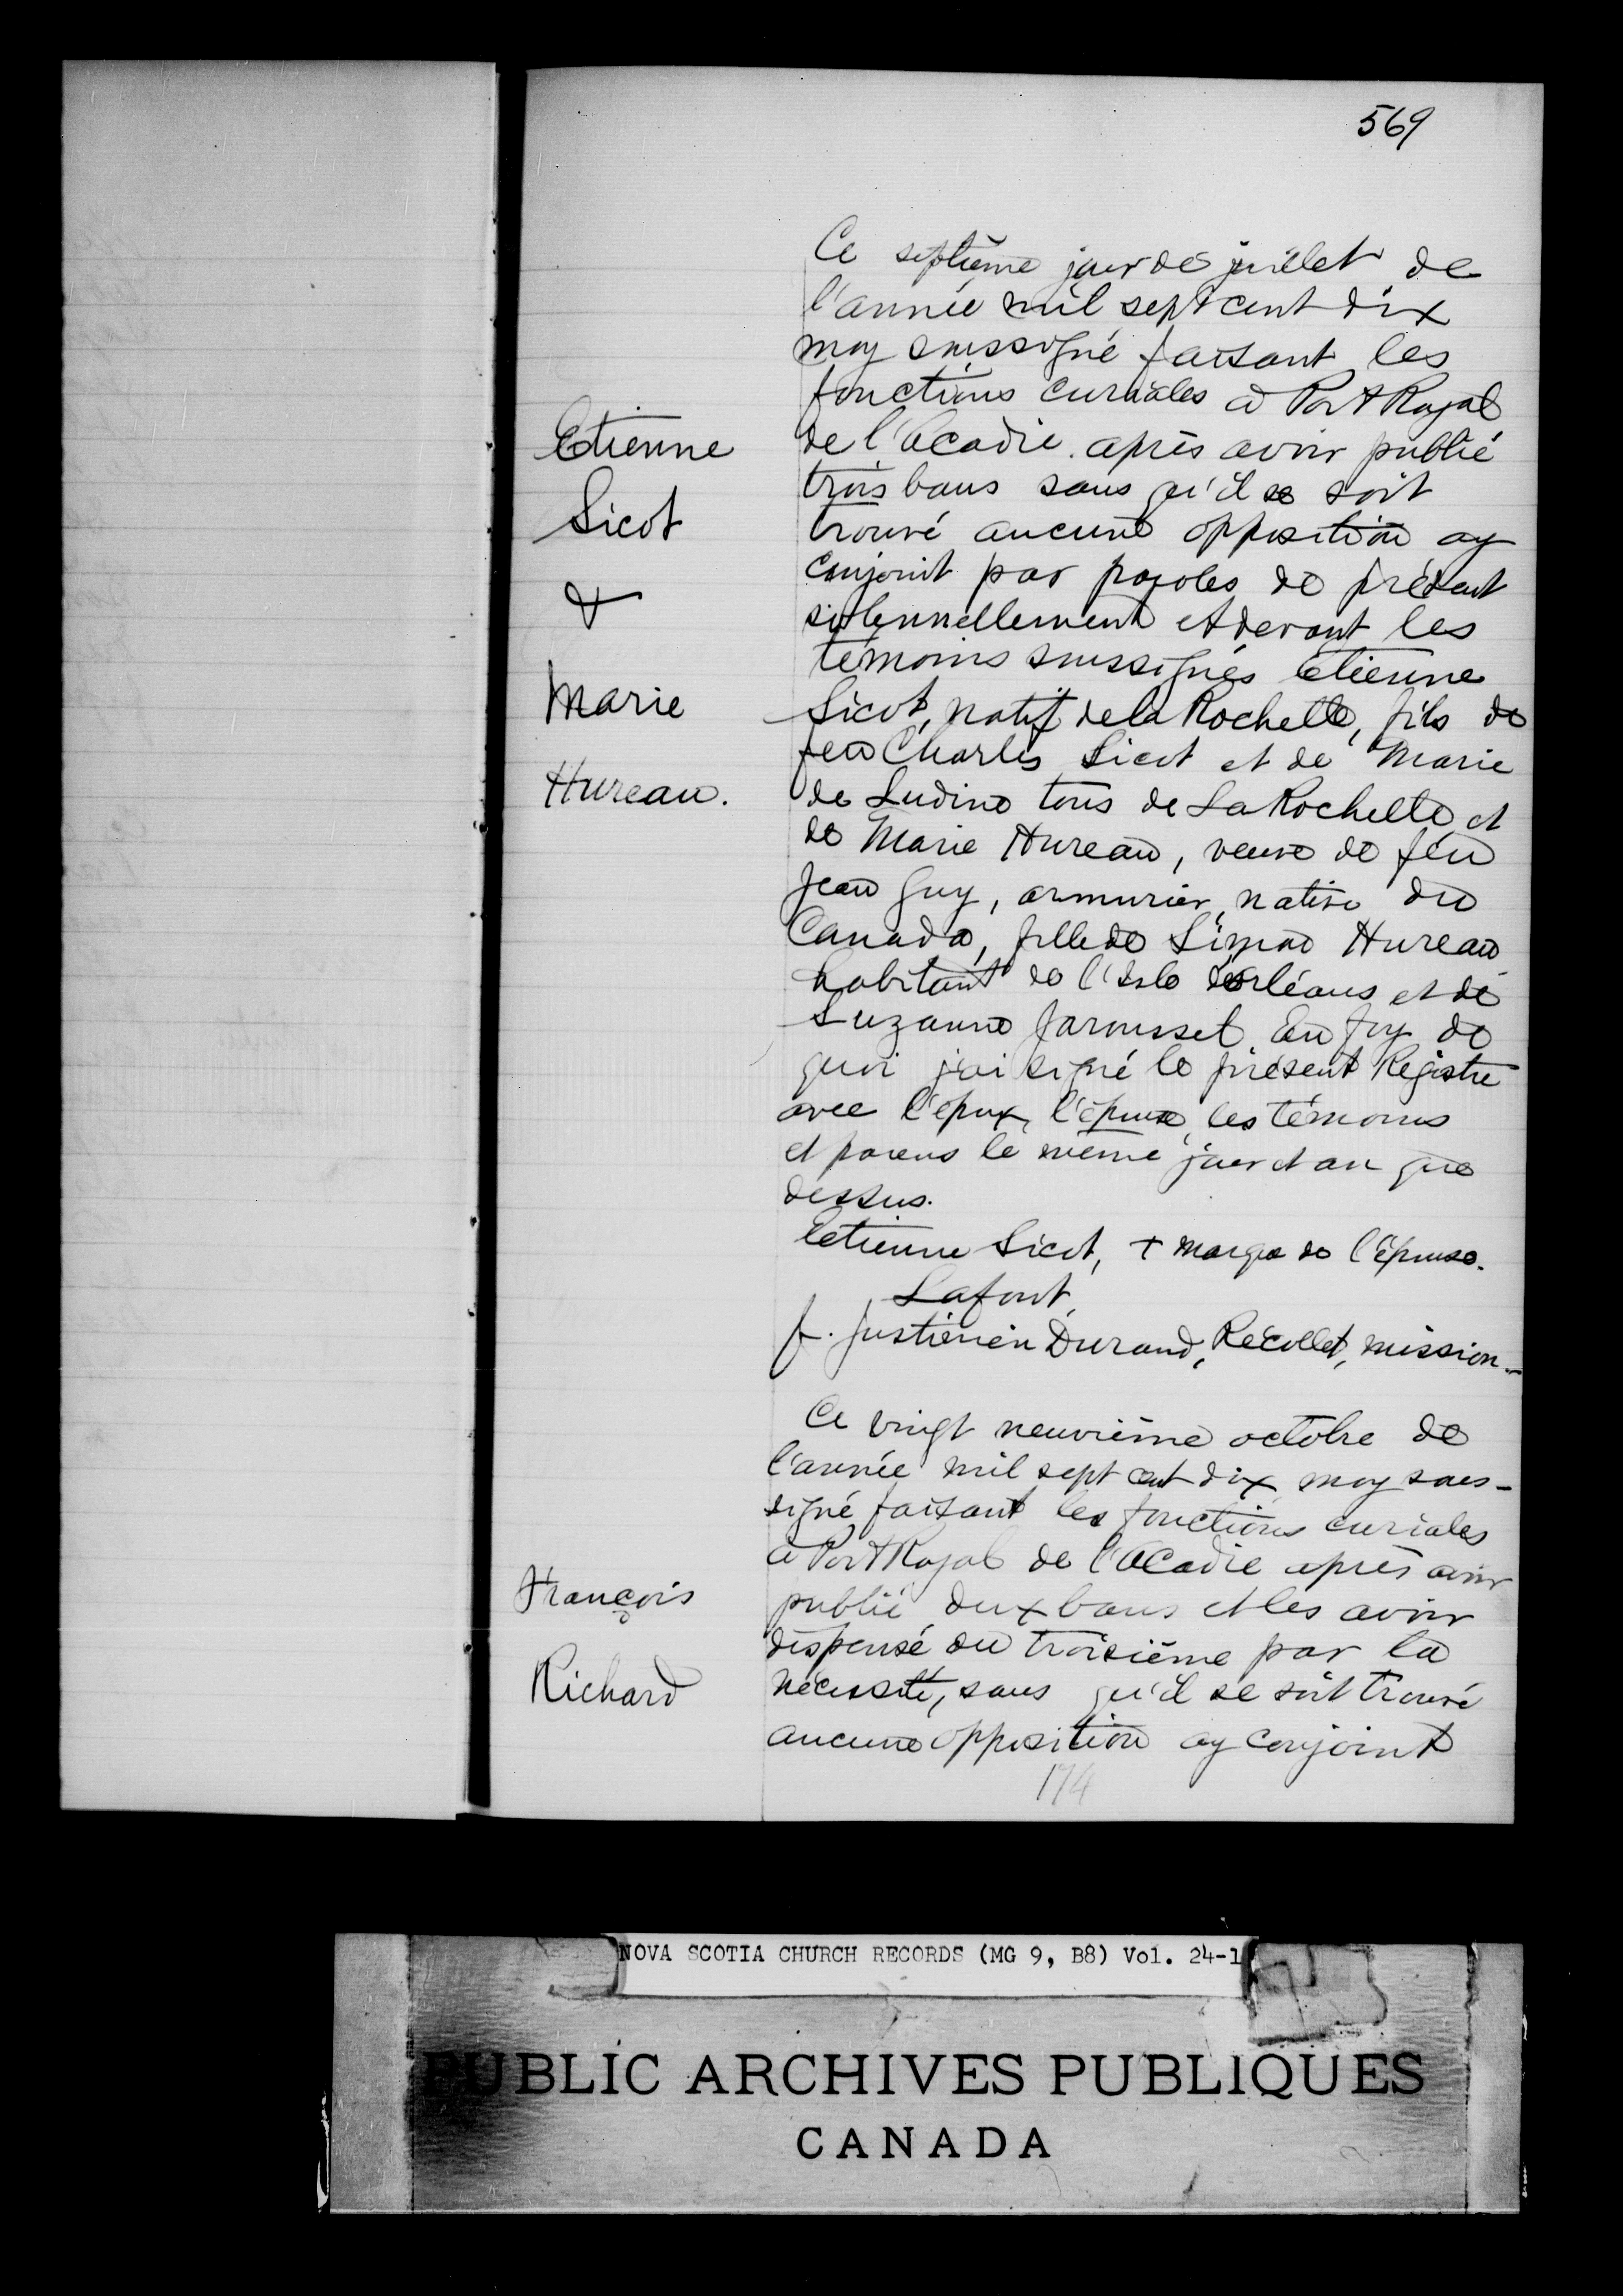 569
Ce septième jour de juillet de
l'année mil sept cent dix
moy soussigné faisant les
fonctions curiales à Port Royal
de l'Acadie après avoir publié
trois bans sans qu'il se soit
trouvé aucune opposition ay
conjoint par paroles de présent
solennellement et devant les
témoins soussignés Etienne
Sicot, natif de la Rochelle, fils de
feu Charles Sicot et de Marie
de Ludine tous de La Rochelle et
de Marie Hureau, veuve de feu
Jean Guy, armurier, native du
Canada, fille de Simon Hureau
habitant de l'Isle d'Orléans et de
Suzanne Jarousset. En foy de
quoi j'ai signé le présent Registre
avec l'époux, l'épouse, les témoins
et parens le même jour et an que
dessus.
Etienne Sicot, + marque de l'épouse.
Lafont,
f. Justinien Durand, Récollet, mission.-
Etienne
Sicot
&
Marie
Hureau.
Ce vingt neuvième octobre de
l'année mil sept cent dix moy sous-
signé faisant les fonctions curiales
à Port Royal de l'Acadie après avoir
publié deux bans et les avoir
dispensé du troisième par la
nécessité, sans qu'il se soit trouvé
aucune opposition ay conjoint
François
Richard
174
NOVA SCOTIA CHURCH RECORDS (MG 9, B8) Vol. 24-1
PUBLIC ARCHIVES PUBLIQUES
CANADA